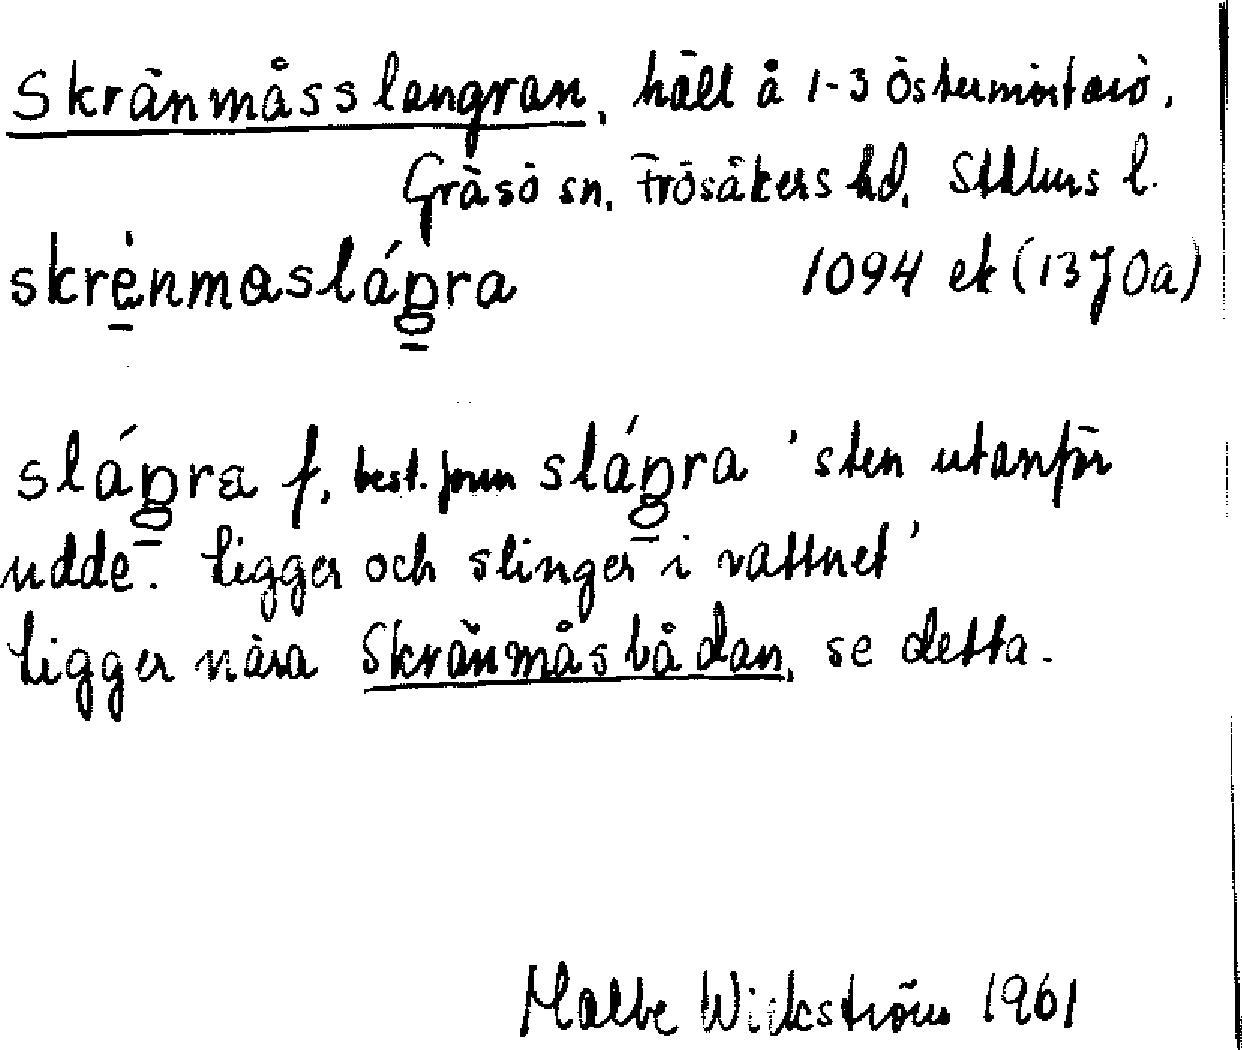 Skränmåsslangran, häll å 1-3 Östermörtarö,
Gräsö sn, Frösåkers hd, Sthlms l.
skrènmaslágra 1094 ek (13J0a)
slágra f, best. form slágra 'sten utanför
udde. ligger och slinger i vattnet'
ligger nära Skränmåsbådan, se detta.
Wickström 1961